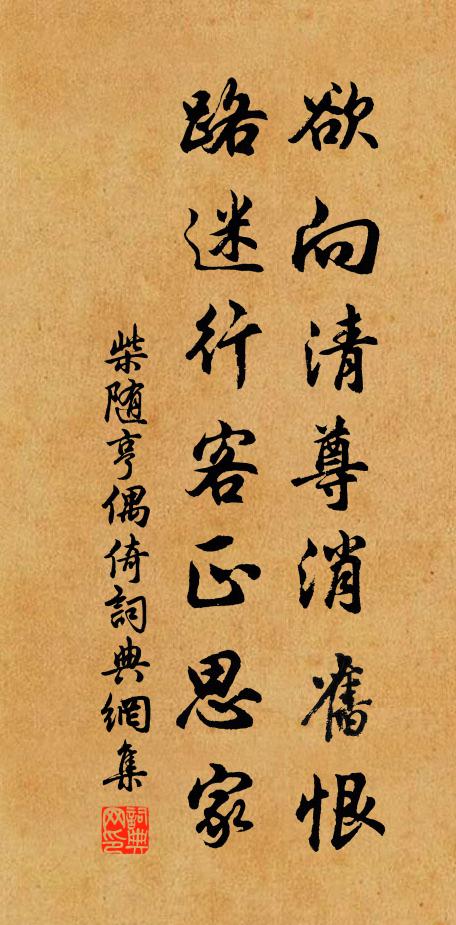 欲向清尊消舊恨
路迷行客正思家
柴随亨偶倚詞典網集
詞典网印